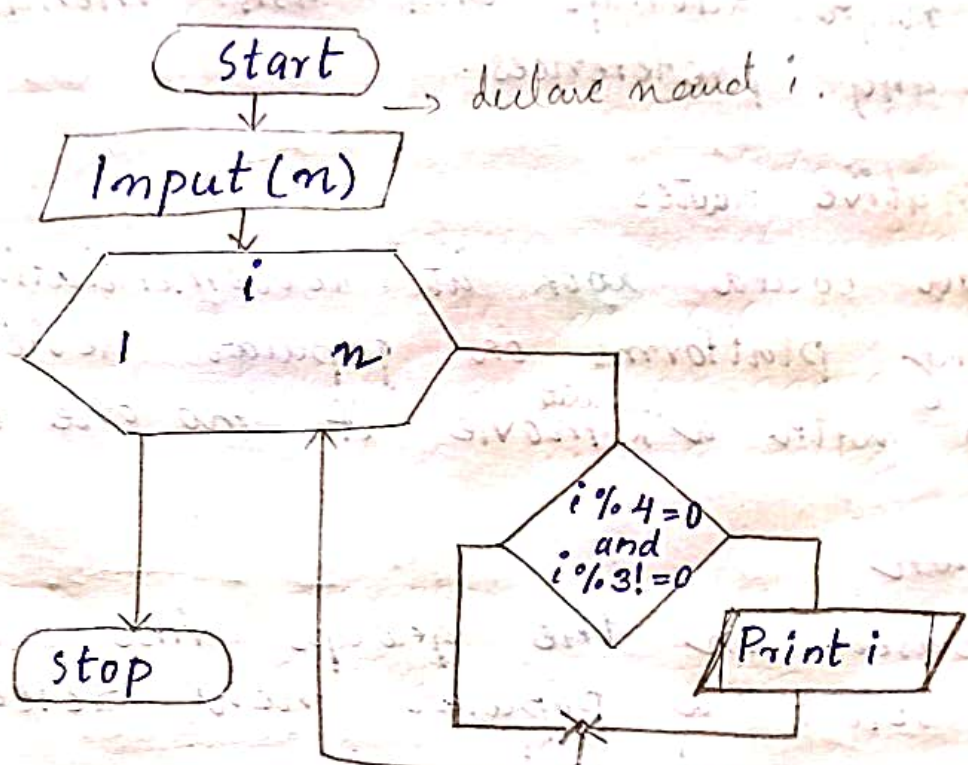 Start
→ declare n and i.
Input (n)
i
1 n
i % 4 = 0
and
i % 3! = 0
Print i
stop